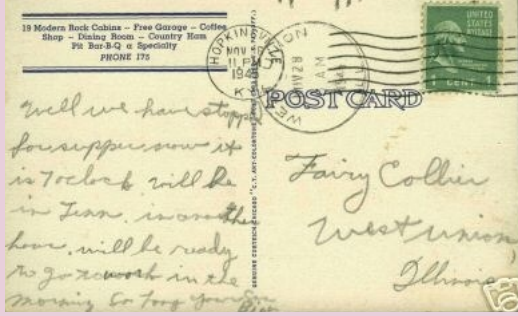 19 Modern Rock Cabins – Free Garage – Coffee
Shop – Dining Room – Country Ham
Pit Bar-B-Q a Specialty
PHONE 175
HOPKINSVILLE
NOV
11 PM
194
KY.
NOV 28
AM
UNITED
STATES
POSTAGE
1 CENT 1
POST CARD
GENUINE CURTEICH-CHICAGO "C.T. ART-COLORTONE"
Well we have stopped
for supper now it
is 7 oclock will be
in Tenn. in another
hour. will be ready
to go to work in the
morning So long your Son
Fairy Collier
West Union,
Illinois